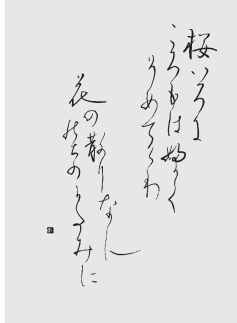 桜いろに
ころもはふかく
そめてきむ
花の散りなん
のちのかたみに